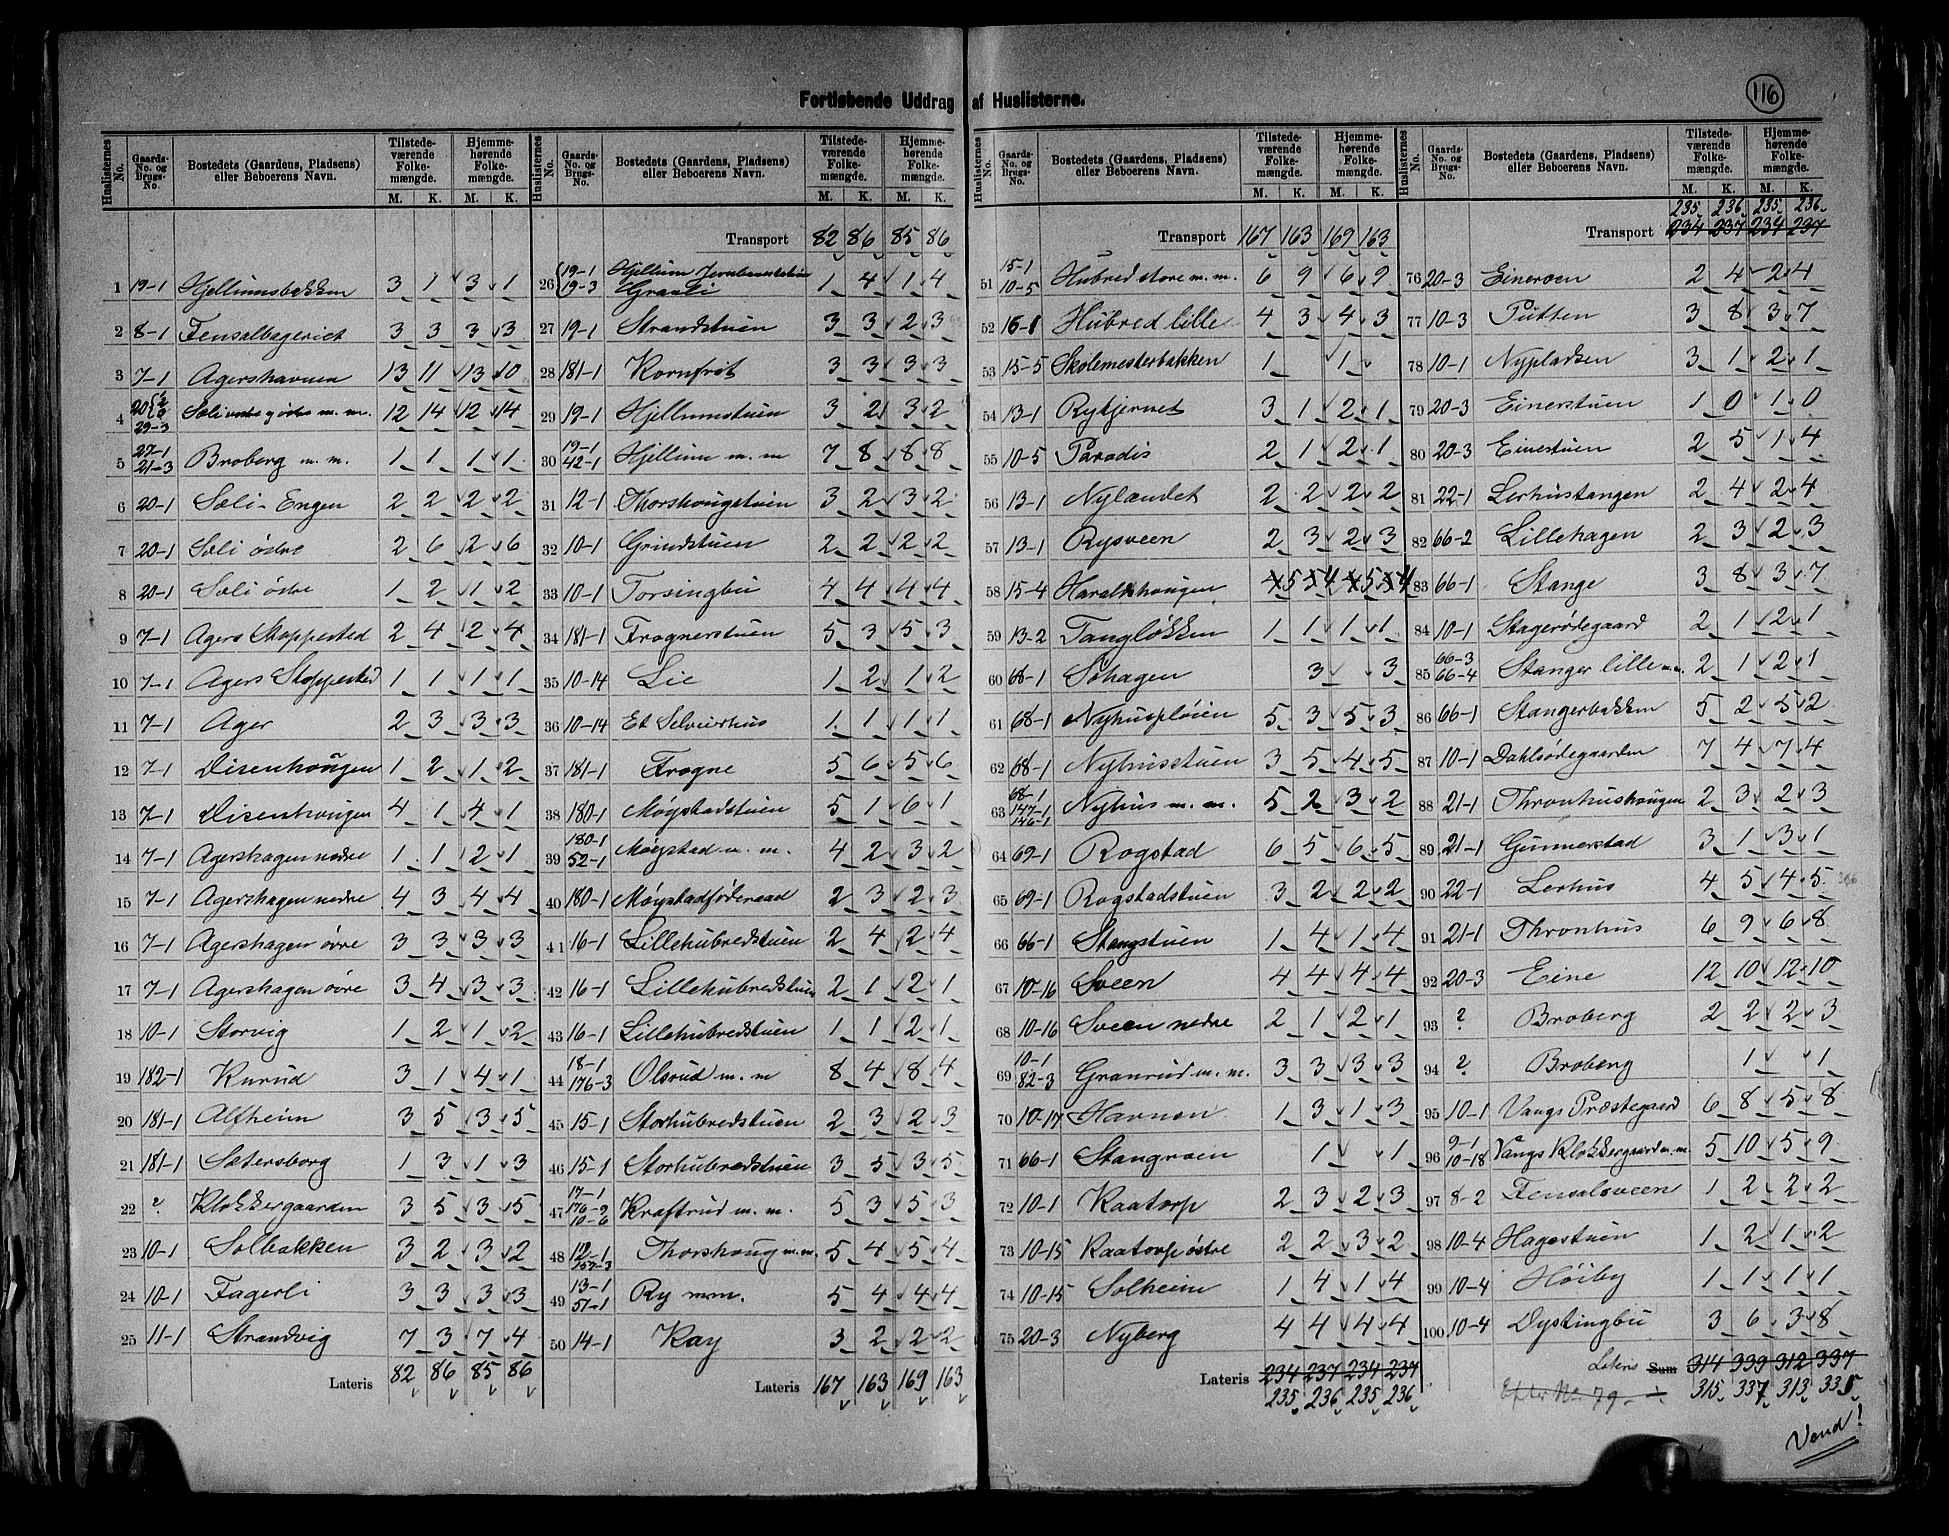 116
Fortløbende Uddrag af Huslisterne.
Huslisternes No. Gaards-No. og Brugs-No. Bostedets (Gaardens, Pladsens) eller Beboerens Navn. Tilstedeværende Folkemængde. M. K. Hjemmehørende Folkemængde. M. K.
1 19-1 Hjellumsbakken 3 1 3 1
2 8-1 Fensalbageriet 3 3 3 3
3 7-1 Agershavnen 13 11 13 10
4 Sæli vestre g østre m. m. 12 14 12 14
5 27-1 21-3 Broberg m. m. 1 1 1 1
6 20-1 Sæli-Engen 2 2 2 2
7 20-1 Sæli østre 2 6 2 6
8 20-1 Sæli østre 1 2 1 2
9 7-1 Agers Stoppested 2 4 2 4
10 7-1 Agers Stoppested 1 1 1 1
11 7-1 Ager 2 3 3 3
12 7-1 Disenhougen 1 2 1 2
13 7-1 Disenhougen 4 1 4 1
14 7-1 Agershagen nedre 1 1 2 1
15 7-1 Agershagen nedre 4 3 4 4
16 7-1 Agershagen øvre 3 3 3 3
17 7-1 Agershagen øvre 3 4 3 3
18 10-1 Storvig 1 2 1 2
19 182-1 Kurud 3 1 4 1
20 181-1 Alfheim 3 5 3 5
21 181-1 Sætersborg 1 3 1 3
22 ? Klokkergaarden 3 5 3 5
23 10-1 Solbakken 3 2 3 2
24 10-1 Fagerli 3 3 3 3
25 11-1 Strandvig 7 3 7 4
Lateris 82 86 85 86
Huslisternes No. Gaards-No. og Brugs-No. Bostedets (Gaardens, Pladsens) eller Beboerens Navn. Tilstedeværende Folkemængde. M. K. Hjemmehørende Folkemængde. M. K.
Transport 82 86 85 86
26 19-1 19-3 Hjellum Jernbanestation Granli 1 4 1 4
27 19-1 Strandstuen 3 3 2 3
28 181-1 Kornfrit 3 3 3 3
29 19-1 Hjellumstuen 3 2 3 2
30 19-1 42-1 Hjellum m. m 7 8 8 8
31 12-1 Thorshougstuen 3 2 3 2
32 10-1 Grindstuen 2 2 2 2
33 10-1 Torsingbu 4 4 4 4
34 181-1 Frognerstuen 5 3 5 3
35 10-14 Lie 1 2 1 2
36 10-14 Et Selveierhus 1 1 1 1
37 181-1 Frogne 5 6 5 6
38 180-1 Møystadstuen 5 1 6 1
39 180-1 52-1 Møystad m. m. 4 2 3 2
40 180-1 Møystadføderaad 2 3 2 3
41 16-1 Lillehubredstuen 2 4 2 4
42 16-1 Lillehubredstuen 2 1 2 1
43 16-1 Lillehubredstuen 1 1 2 1
44 18-1 176-3 Olsrud m. m 8 4 8 4
45 15-1 Storhubredstuen 2 3 2 3
46 15-1 Storhubredstuen 3 5 3 5
47 17-1 176-2 10-6 Kraftrud m. m. 5 3 5 3
48 12-1 Thorshoug m. m. 5 4 5 4
49 13-1 51-1 Ry m m. 5 4 4 4
50 14-1 Kay 3 2 2 2
Lateris 167 163 169 163
Huslisternes No. Gaards-No. og Brugs-No. Bostedets (Gaardens, Pladsens) eller Beboerens Navn. Tilstedeværende Folkemængde. M. K. Hjemmehørende Folkemængde. M. K.
Transport 167 163 169 163
51 15-1 10-5 Hubred store m. m. 6 9 6 9
52 16-1 Hubred lille 4 3 4 3
53 15-5 Skolemesterbakken 1 1
54 13-1 Rykjernet 3 1 2 1
55 10-5 Paradis 2 1 2 1
56 13-1 Nylændet 2 2 2 2
57 13-1 Rysveen 2 3 2 3
58 15-4 Haralkhougen 5 4 5 4
59 13-2 Tangløkken 1 1 1 1
60 68-1 Sohagen 3 3
61 68-1 Nyhuspløien 5 3 5 3
62 68-1 Nyhusstuen 3 5 4 5
63 68-1 147-1 146-1 Nyhus m. m. 5 2 3 2
64 69-1 Rogstad 6 5 6 5
65 69-1 Rogstadstuen 3 2 2 2
66 66-1 Stangstuen 1 4 1 4
67 10-16 Sveen 4 4 4 4
68 10-16 Sveen nedre 2 1 2 1
69 10-1 82-3 Granrud m. m. 3 3 3 3
70 10-17 Havnen 1 3 1 3
71 66-1 Stangroen 1 1
72 10-1 Kaatorp 2 3 2 3
73 10-15 Kaatorp østre 2 2 3 2
74 10-15 Solheim 1 4 1 4
75 20-3 Nyberg 4 4 4 4
Lateris 234 237 234 237
235 236 235 236
Huslisternes No. Gaards-No. og Brugs-No. Bostedets (Gaardens, Pladsens) eller Beboerens Navn. Tilstedeværende Folkemængde. M. K. Hjemmehørende Folkemængde. M. K.
235 236 235 236
Transport 234 237 234 237
76 20-3 Eineroen 2 4 2 4
77 10-3 Putten 3 8 3 7
78 10-1 Nypladsen 3 1 2 1
79 20-3 Einerstuen 1 0 1 0
80 20-3 Einestuen 2 5 1 4
81 22-1 Lerhustangen 2 4 2 4
82 66-2 Lillehagen 2 3 2 3
83 66-1 Stange 3 8 3 7
84 10-1 Stagerødegaard 2 1 2 1
85 66-3 66-4 Stanger lille m. m. 2 1 2 1
86 66-1 Stangerbakken 5 2 5 2
87 10-1 Dahlsødegaarden 7 4 7 4
88 21-1 Thronhushougen 2 3 2 3
89 21-1 Gunnerstad 3 1 3 1
90 22-1 Lerhus 4 5 4 5
91 21-1 Thronhus 6 9 6 8
92 20-3 Eine 12 10 12 10
93 ? Broberg 2 2 2 3
94 ? Broberg 1 1
95 10-1 Vangs Præstegaard 6 8 5 8
96 9-1 10-18 Vangs Klokkergaard m. m. 5 10 5 9
97 8-2 Fensalsveen 1 2 2 2
98 10-4 Hagestuen 1 2 1 2
99 10-4 Høiby 1 1 1 1
100 10-4 Dystingbu 3 6 3 8
Lateris Sum 314 339 312 337
Efter No. 79 315 337 313 335
Vend!